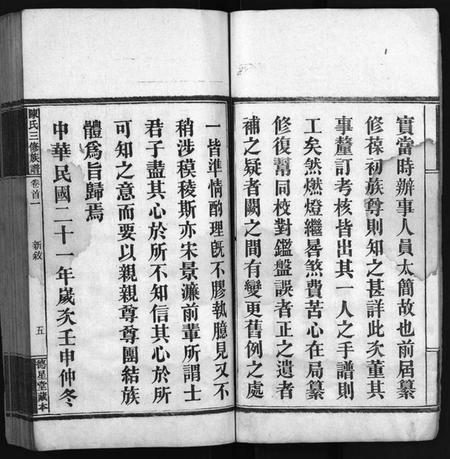 實當時辦事人員太簡故也前屆纂
修葆初族尊則知之甚詳此次董其
事釐訂考核皆出其一人之手譜則
工矣然燃燈繼晷煞費苦心在局纂
修復幫同校對鑑盤誤者正之遺者
補之疑者闕之間有變更舊例之處
一皆準情酌理旣不膠執臆見又不
稍涉模稜斯亦宋景濂前輩所謂士
君子盡其心於所不知信其心於所
可知之意而要以親親尊尊團結族
體爲旨歸焉
中華民國二十一年歲次壬申仲冬
陳氏三修族譜
卷首一
新敘
五
德星堂藏本